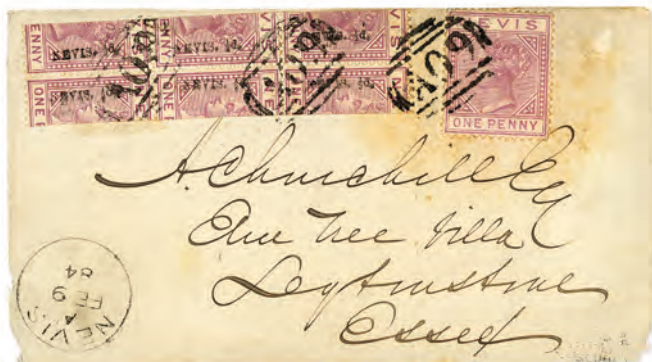 NEVIS
ONE PENNY
NEVIS. ½d. NEVIS. ½d. NEVIS. ½d.
NEVIS. ½d. NEVIS. ½d. NEVIS. ½d.
A09 A09 A09
A. Churchill Esq
Elm Tree Villa
Leytonstone
Essex
NEVIS
A
FE 9
84